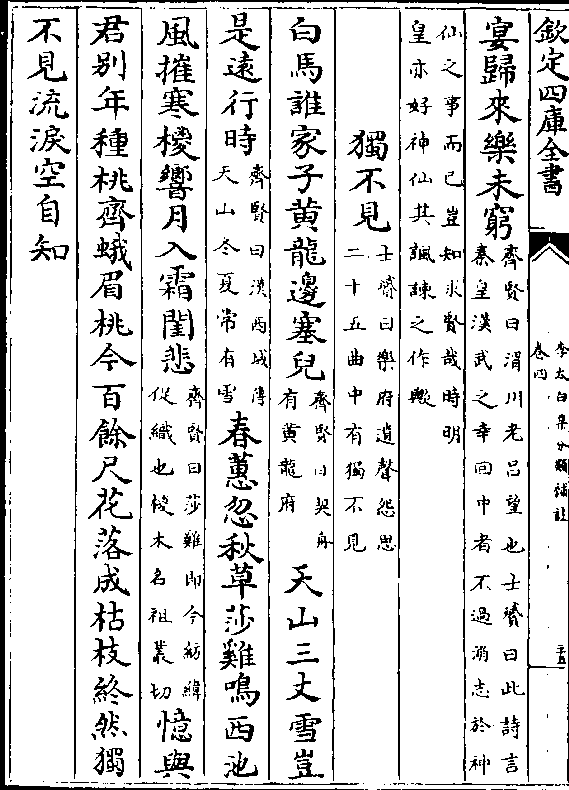 欽定四庫全書
李太白集分類補註
卷四
三五
宴歸來樂未窮齊賢曰渭川老吕望也士贇曰此詩言秦皇漢武之幸回中者不過溺志於神
仙之事而已豈知求賢哉時明皇亦好神仙其諷諫之作歟
獨不見士贇曰樂府遺聲怨思二十五曲中有獨不見
白馬誰家子黄龍邊塞兒齊賢曰契丹有黄龍府天山三丈雪豈
是遠行時齊賢曰漢西域傳天山冬夏常有雪春蕙忽秋草莎雞鳴西池
風摧寒椶響月入霜閨悲齊賢曰莎雞即今紡緯促織也椶木名祖叢切憶與
君别年種桃齊蛾眉桃今百餘尺花落成枯枝終然獨
不見流淚空自知